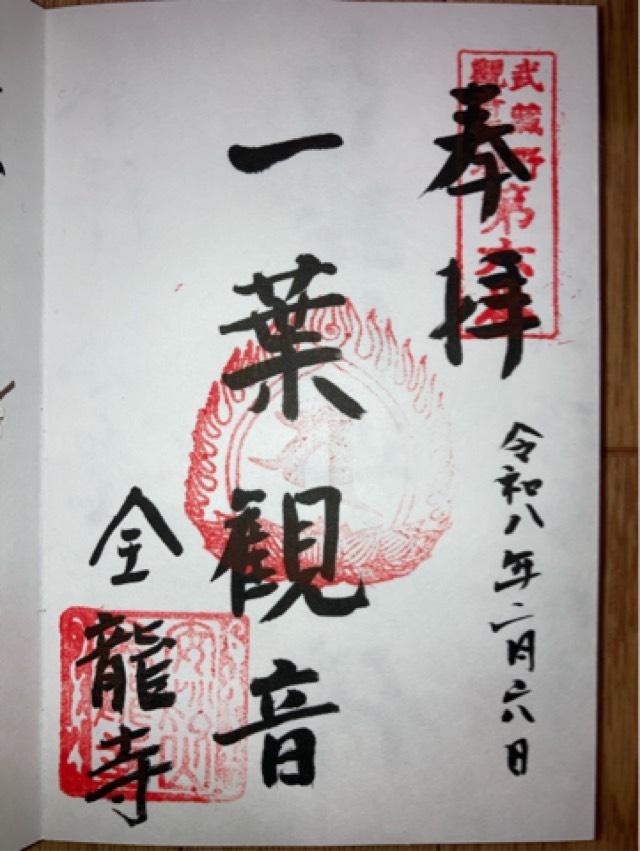 武蔵野
第六
奉拝
令和八年二月六日
一葉観音
全龍寺